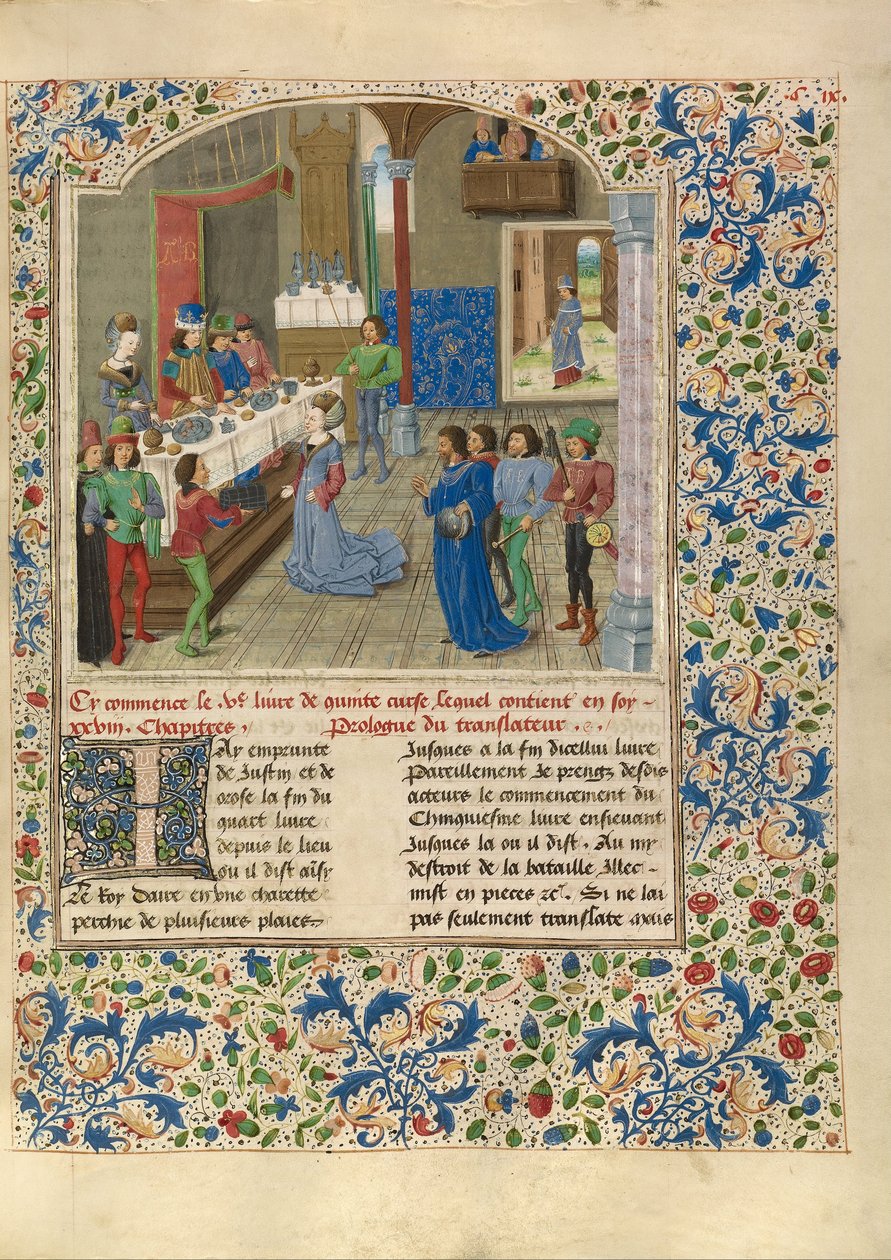 C IX.
Cy commence le .ve livre de quinte curse, lequel contient en soy
xxviii. Chapitres, Prologue du translateur. c.
Ay emprunte
de Justin et de
orose la fin du
quart livre
depuis le lieu
ou il dist ainsy
Le Roy daire en une charette
perchie de pluiseurs plaies
Jusques a la fin dicellui livre
Pareillement Je prengz desdis
acteurs le commencement du
Chinquiesme livre ensievant
Jusques la ou il dist. Au my
destroit de la bataille Illec
mist en pieces zc. Si ne lai
pas seulement translate mais